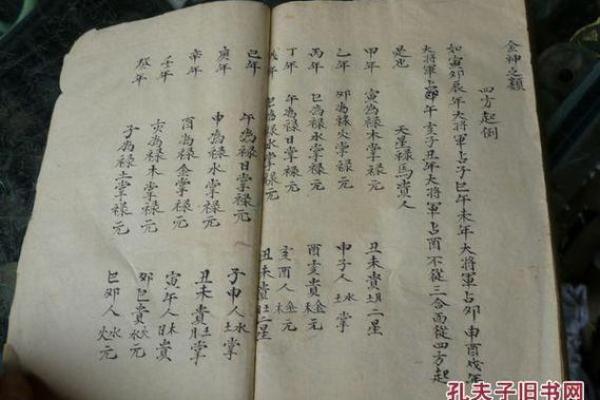 金神之類
四方起倒
如寅夘辰年大將軍占子巳午未年大將軍占夘申酉戌年
大將軍占年亥子丑年大將軍占酉不從三合面從四方起
是也 天星禄馬貴人
甲年 寅為禄木掌禄元 丑未貴二星
乙年 夘為禄火掌禄元 申子人土水掌
丙年 巳為禄水掌禄元 酉亥貴金元
丁年 午為禄日掌禄元 亥酉人金元
年 巳為禄水掌禄元 丑未貴二星
巳年 午為禄日掌禄元 子申人土水掌
庚年 申為禄水掌禄元 丑未貴掌
辛年 酉為禄金掌禄元 寅午人日木貴
壬年 亥為禄木掌禄元 夘巳貴水火元
癸年 子為禄土掌禄元 巳夘人水火元
孔夫子旧书网